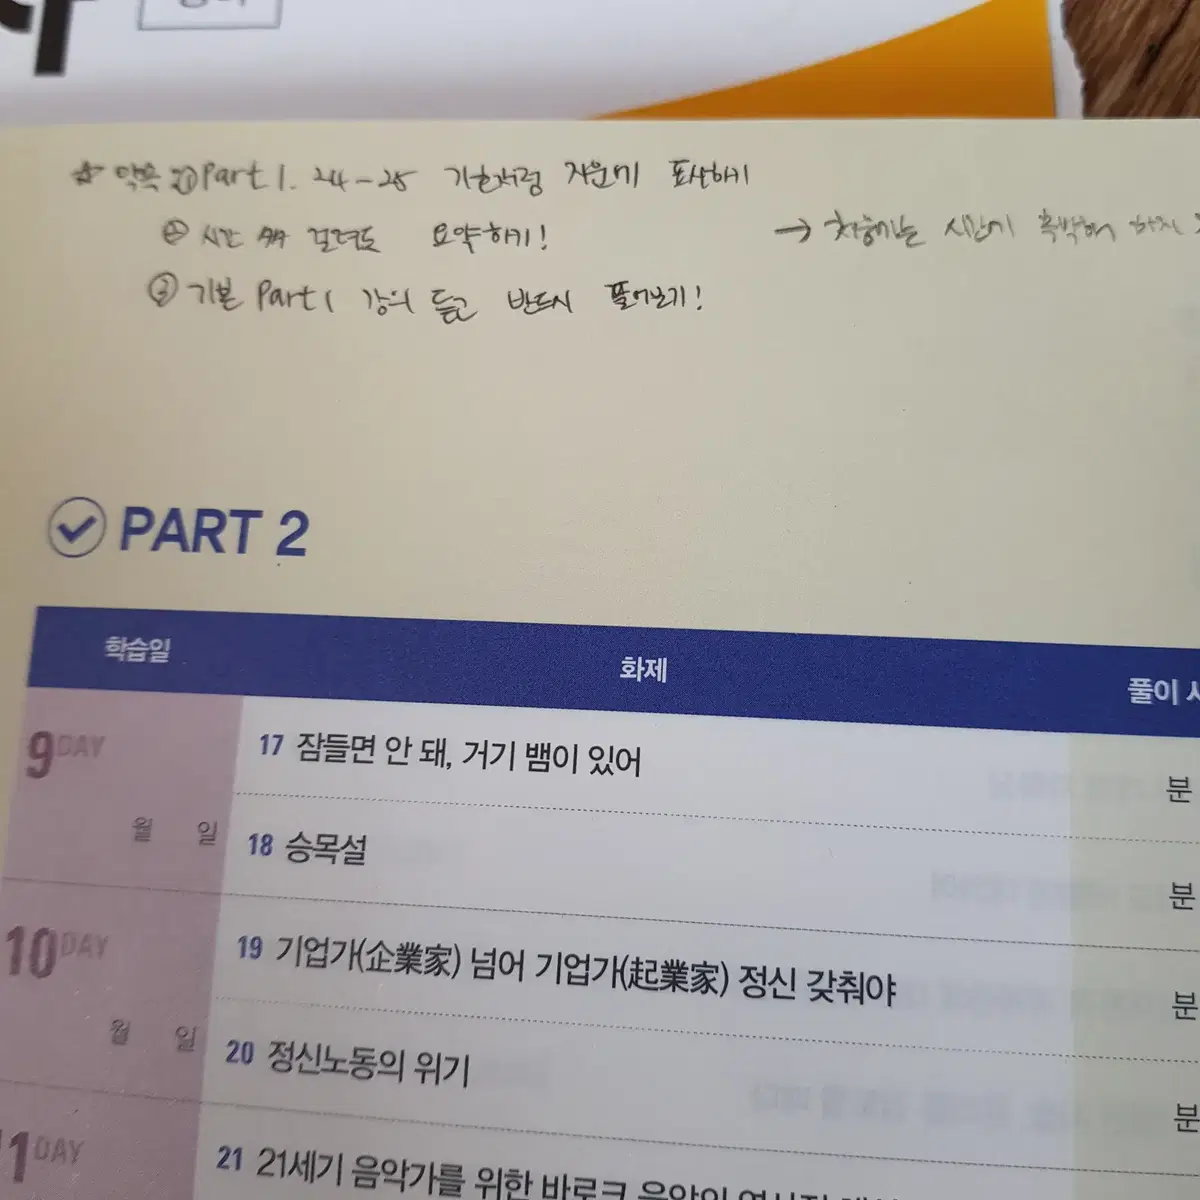 ☆ 약속 ① Part 1. 24-25 기출처럼 지문에 표시하기
② 시간 걸려도 요약하기! → 처음에는 시간에 하지
③ 기본 Part 1 강의 듣고 반드시 풀어보기!
PART 2
학습일 화제 풀이
9 DAY 월 일
17 잠들면 안 돼, 거기 뱀이 있어 분
18 승목설 분
10 DAY 월 일
19 기업가(企業家) 넘어 기업가(起業家) 정신 갖춰야 분
20 정신노동의 위기 분
11 DAY
21 21세기 음악가를 위한 바로크 음악의